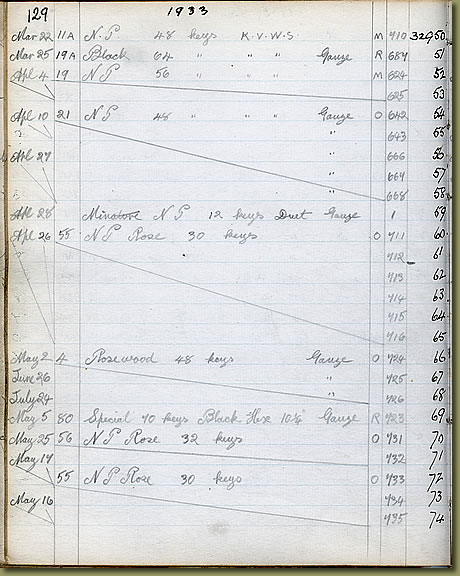 129 1933
Mar 22 11A N.P 48 keys K.V.W.S. M 710 32950
Mar 25 19A Black 64 " " Gauze R 687 51
Apl 4 19 N P 56 " " M 624 52
625 53
Apl 10 21 N P 48 " " Gauze O 642 54
" 643 55
Apl 27 " 666 56
" 667 57
" 668 58
Apl 28 Minature N P 12 keys Duet Gauze 1 59
Apl 26 55 N P Rose 30 keys O 711 60
712 61
713 62
714 63
715 64
716 65
May 2 4 Rosewood 48 keys Gauze O 724 66
June 26 " 725 67
July 24 " 726 68
May 5 80 Special 70 keys Black Hex 10¼" Gauze R 723 69
May 25 56 N P Rose 32 keys O 731 70
May 17 732 71
55 N P Rose 30 keys O 733 72
May 16 734 73
735 74